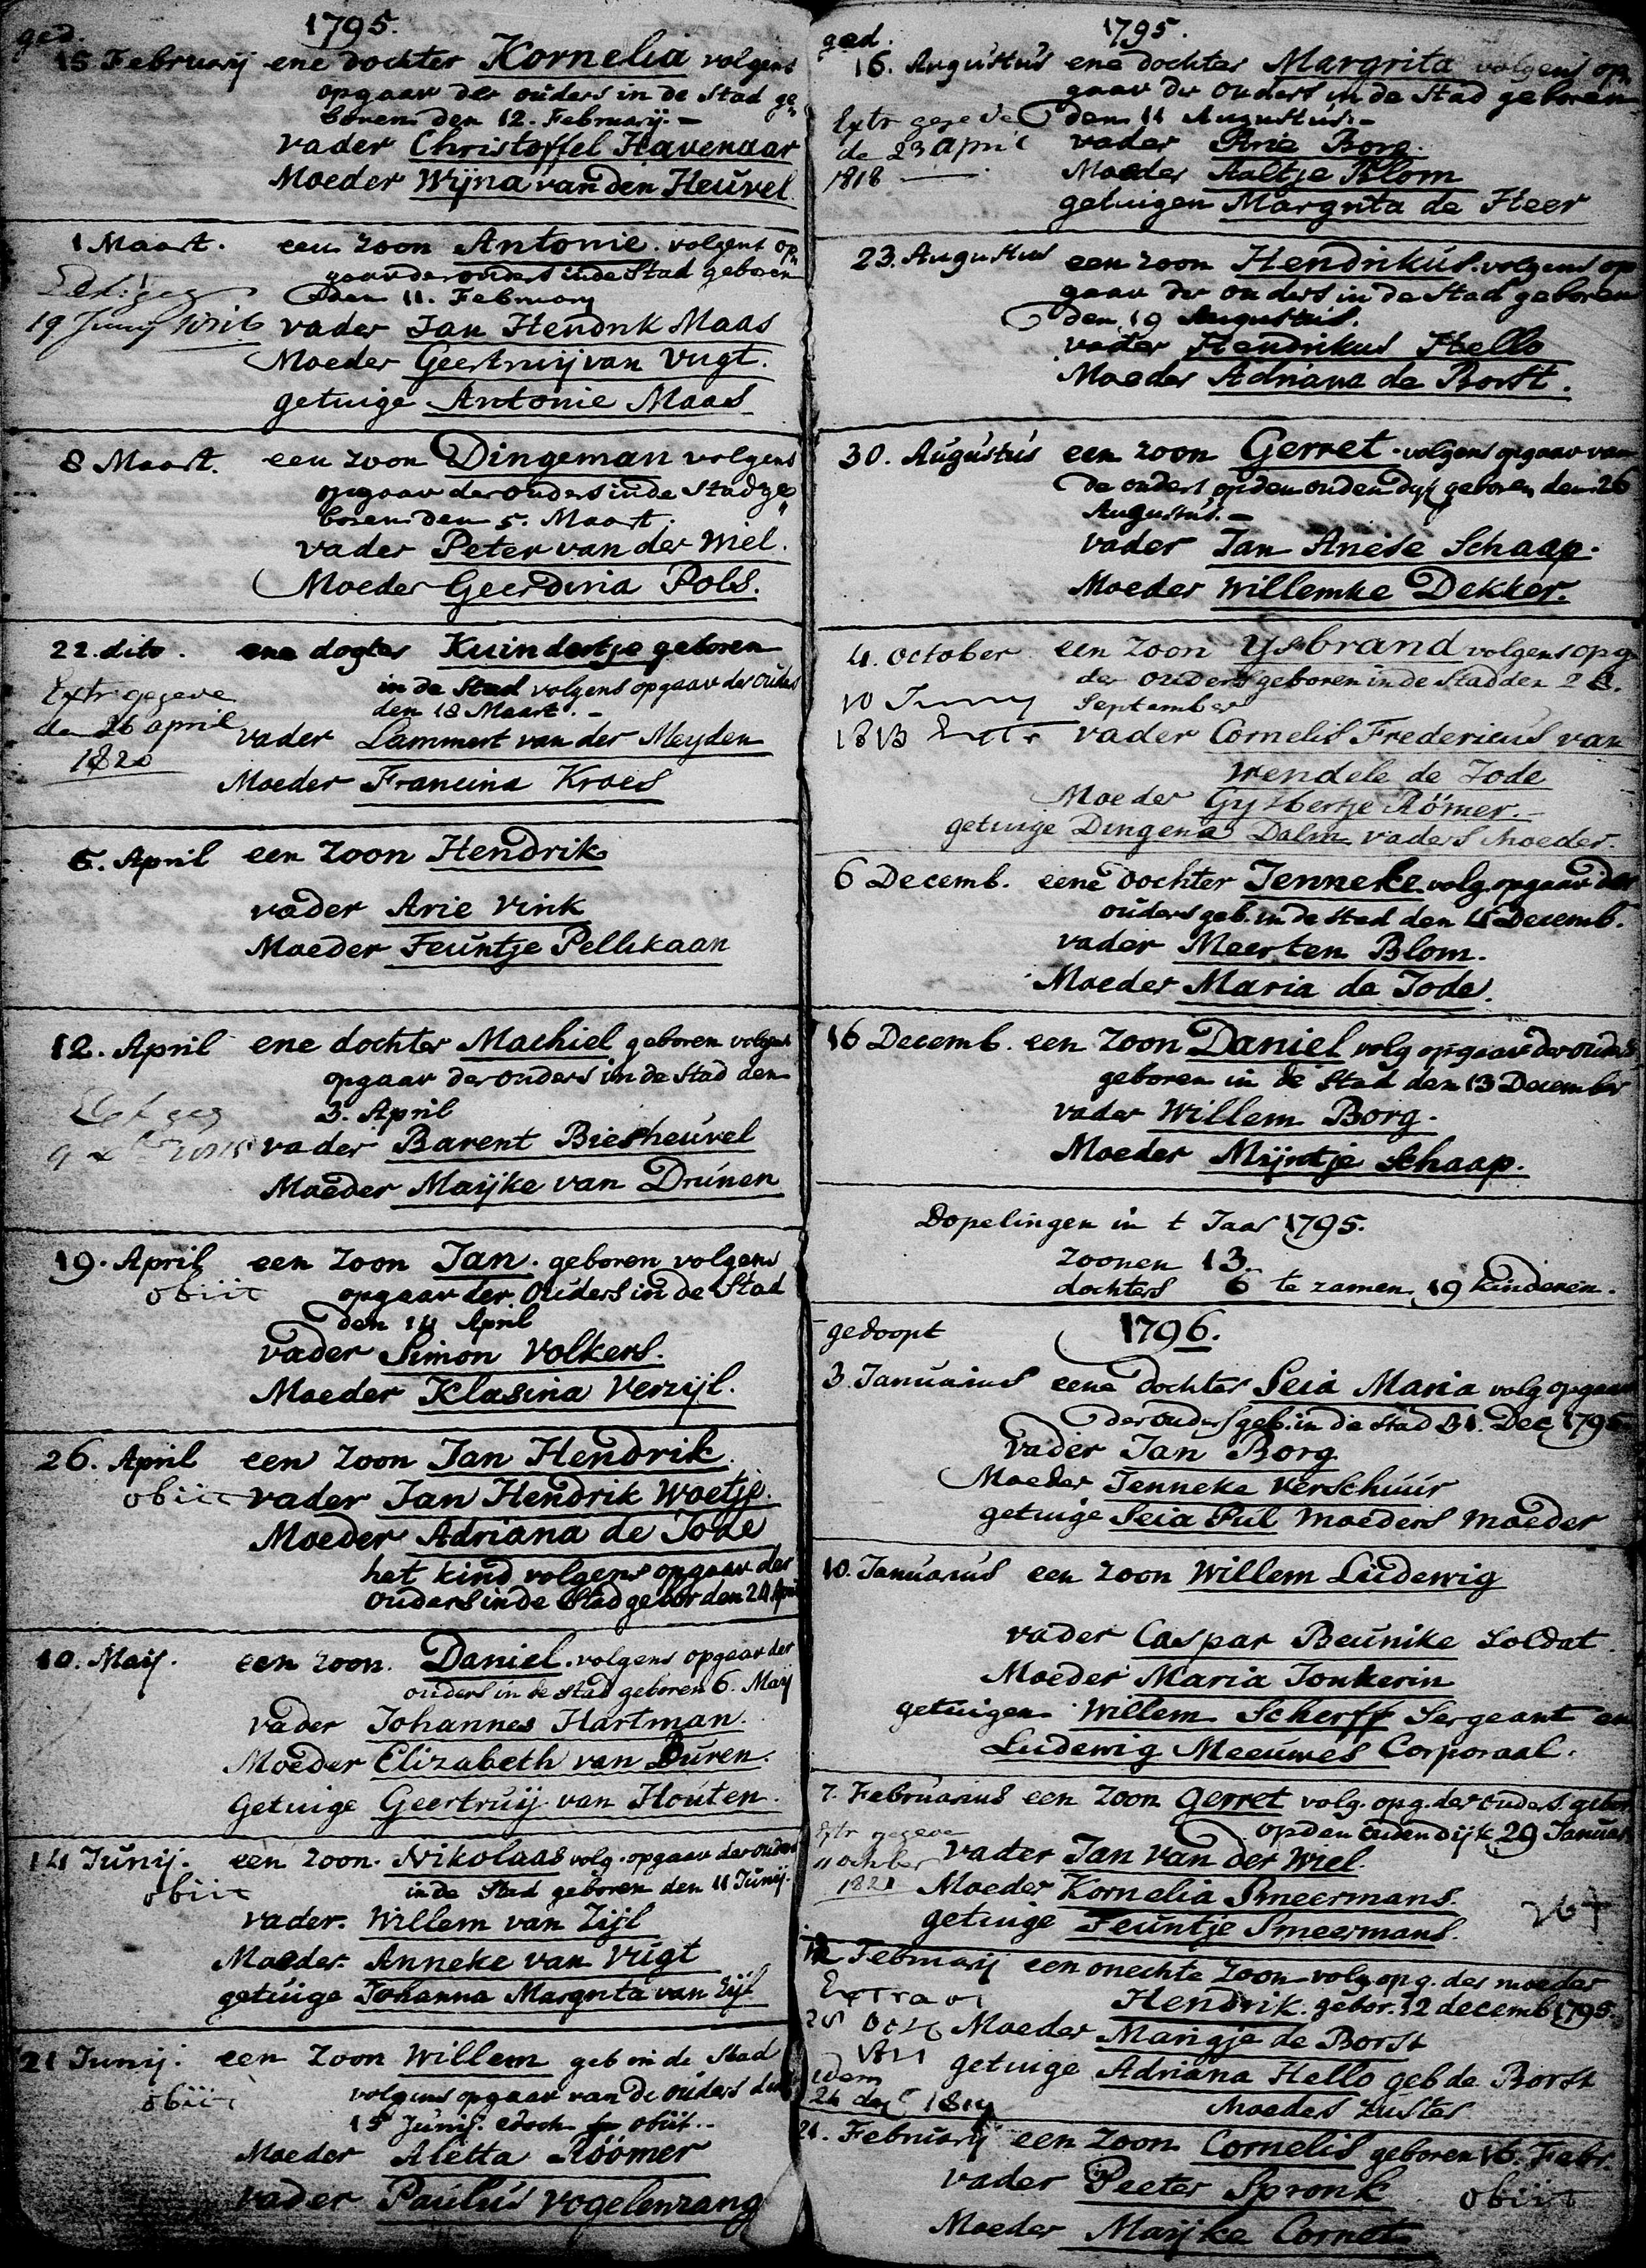 ged. 1795.
15 Februarij ene dochter Kornelia volgens
opgaav der ouders in de Stad ge
boren den 12. Februarij. –
vader Christoffel Havenaar
Moeder Wijna van den Heuvel.
1 Maart. een zoon Antonie. volgens op
gaav der ouders in de Stad geboren
den 11. February
19 Junij
vader Jan Hendrik Maas
Moeder Geertruij van Vugt.
getuige Antonie Maas
8 Maart. een zoon Dingeman volgens
opgaav der ouders in de Stad ge
boren den 5. Maart.
vader Peter van der Wiel.
Moeder Geerdina Pols.
22. dito. ene dogter Kuindertje geboren
in de Stad volgens opgaav der Ouders
den 18 Maart. –
Extr gegeve
de 26 april
1820
vader Lammert van der Meyden
Moeder Francina Kroes
5. April een zoon Hendrik
vader Arie Vink
Moeder Feuntje Pellikaan
12. April ene dochter Machiel geboren volgens
opgaav der ouders in de Stad den
3. April
vader Barent Biesheuvel
Moeder Maijke van Drunen
19. April een zoon Jan. geboren volgens
obiit opgaav der Ouders in de Stad
den 14 April
vader Simon Volkers.
Moeder Klasina Verzijl.
26. April een zoon Jan Hendrik.
obiit vader Jan Hendrik Woetje.
Moeder Adriana de Jode
het kind volgens opgaav der
ouders in de Stad gebor den 24 April
10. Maij. een zoon. Daniel. volgens opgaav der
ouders in de stad geboren 6. Maij
vader Johannes Hartman.
Moeder Elizabeth van Buren.
Getuige Geertruij van Houten.
14 Junij. een zoon. Nikolaas volg. opgaav der ouders
obiit in de Stad geboren den 11 Junij.
vader. Willem van Zijl
Moeder. Anneke van Vugt
getuige Johanna Margrita van Zijl
21 Junij. een zoon Willem geb in de Stad
obiit volgens opgaav van de ouders den
15 Junij. edoch obiit..
Moeder Aletta Röömer
vader Paulus Vogelenzang
ged. 1795.
16. Augustus ene dochter Margrita volgens op
gaav der ouders in de Stad geboren
Extr gegeve den 11 Augustus. –
de 23 April vader Arie Borg.
1818 Moeder Aaltje Blom
getuigen Margrita de Heer
23. Augustus een zoon Hendrikus. volgens op
gaav der ouders in de Stad geboren
den 19 Augustus.
vader Hendrikus Hello
Moeder Adriana de Borst.
30. Augustus een zoon Gerret. volgens opgaav van
de ouders op den ouden dijk geboren den 26
Augustus. –
vader Jan Aniese Schaap.
Moeder Willemke Dekker.
4. October een zoon Ysbrand volgens opg.
der ouders geboren in de Stad den 28.
10 Juny September
1813 Extr vader Cornelis Fredericus van
Wendele de Jode
Moeder Gijzbertje Römer. –
getuige Dingena Dalm vaders Moeder.
6 Decemb. eene dochter Jenneke volg. opgaav der
ouders geb. in de Stad den 4 Decemb.
vader Meerten Blom.
Moeder Maria de Jode.
16 Decemb. een zoon Daniel volg opgaav der ouders
geboren in de Stad den 13 December
vader Willem Borg.
Moeder Mijntje Schaap.
Dopelingen in t Jaar 1795.
zoonen 13.
dochters 6 te zamen 19 kinderen.
gedoopt 1796.
3. Januarius eene dochter Seia Maria volg opgaav
der ouders geb. in de Stad 31. Dec 1795
vader Jan Borg
Moeder Jenneke Verschuur
getuige Seia Pul moeders moeder
10. Januarius een zoon Willem Ludewig
vader Caspar Beunike Soldat.
Moeder Maria Jonkerin
getuigen Willem Scherff Sergeant en
Ludewig Meeuwes Corporaal.
7. Februarius een zoon Gerret volg. opg. der ouders. gebor
op den oudendijk 29 Januar
Extr gegeve
4 october vader Jan van der Wiel.
1821 Moeder Kornelia Smeermans.
getuige Feuntje Smeermans.
267
12 Februarij een onechte zoon volg opg. der moeder
Hendrik. gebor. 12 decemb 1795.
Moeder Marigje de Borst
getuige Adriana Hello geb de Borst
idem
Moeder Zuster
21. Februarij een zoon Cornelis geboren 16. Febr.
vader Peeter Spronk obiit
Moeder Maijke Cornet